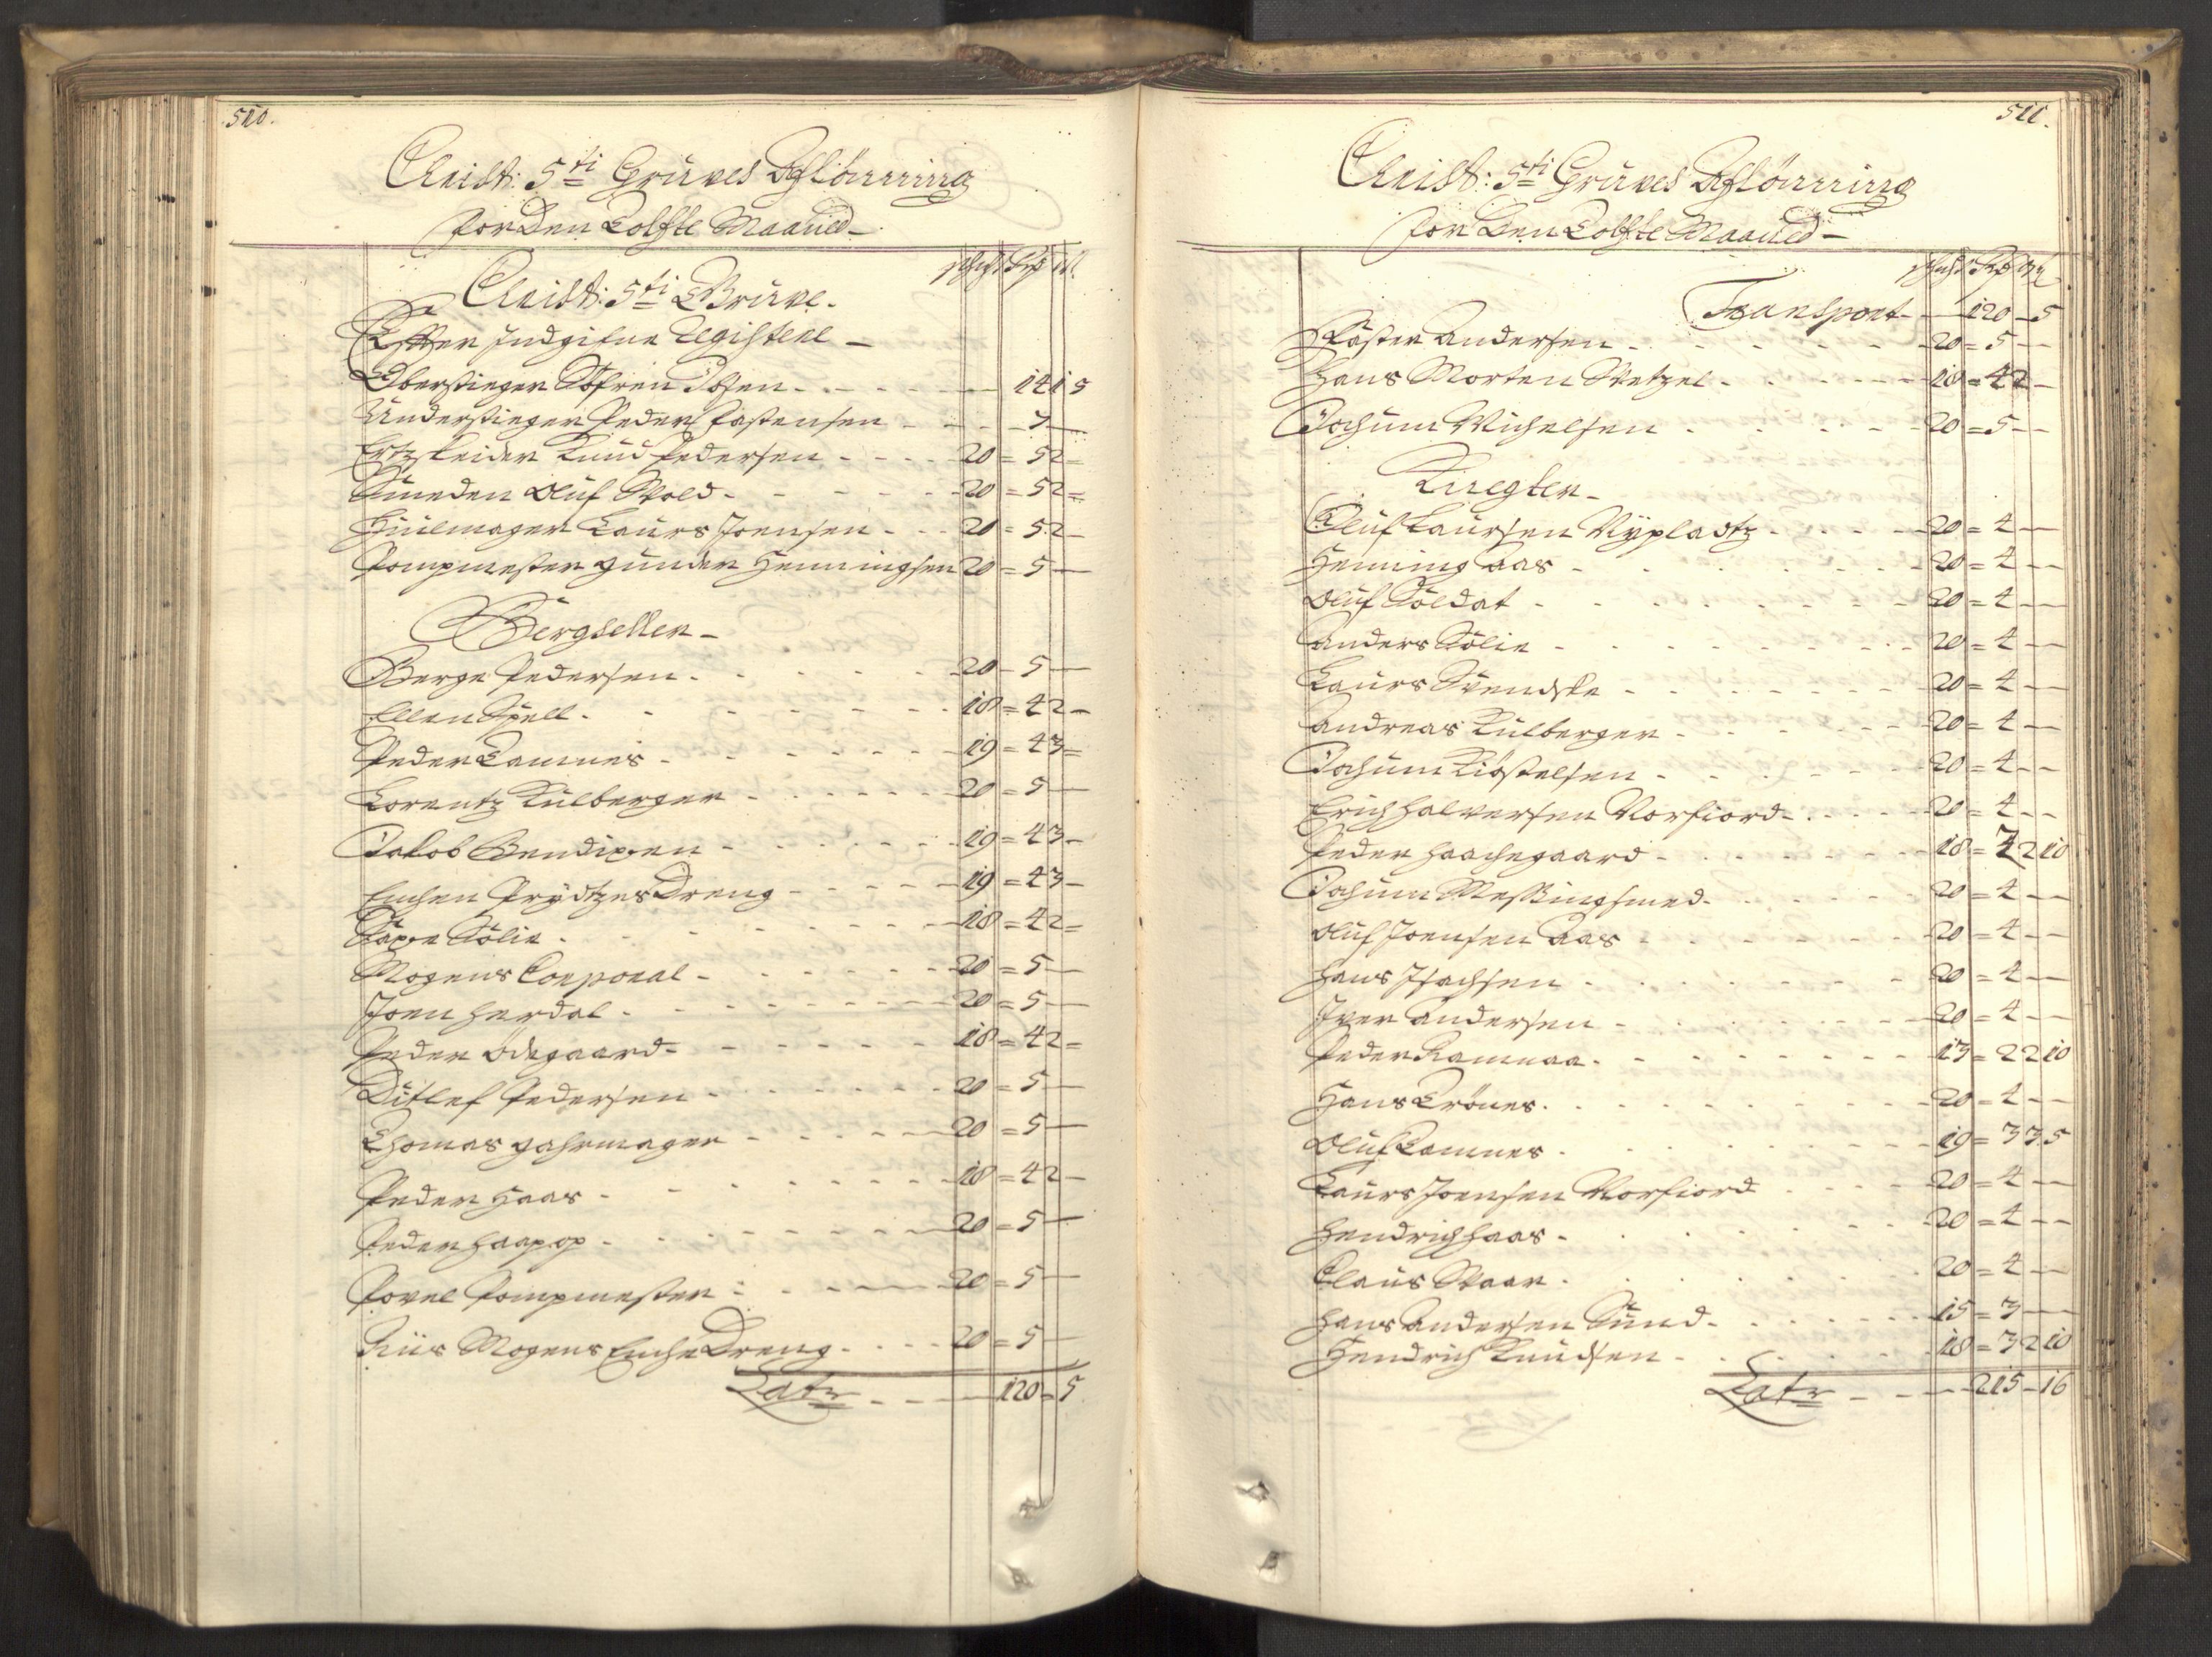 510.
Christ: 5ti Grüves Aflönning
for Den Tolfte Maaned
schcht Rdr M.
Christ: 5ti Grüve.
Efter Indgifne Registere
Oberstieger Söfren Olsen - 14 1 5
Understieger Peder Carstensen - 7
Ertzskeider Knud Pedersen - 20 = 5 2
Smeden Oluf Wold - 20 = 5 2
Huulmager Laurs Joensen - 20 = 5 2
Pompmester Gunder Henningsen 20 = 5
Bergseller
Børge Pedersen - 20 - 5
Ellen Spell - 18 = 4 2
Peder Tamnes - 19 = 4 3
Lorentz Kulberger - 20 = 5
Jakob Bendixen - 19 = 4 3
Prydtzes Dreng - 19 = 4 3
Sölie - 18 = 4 2
Mogens Corporal - 20 = 5
Joen Herdal - 20 = 5
Peder Ödegaard - 18 = 4 2
Ditlef Pedersen - 20 = 5
Thomas Gahrmager - 20 = 5
Peder Haas - 18 = 4 2
Peder Haapop - 20 = 5
Povel Pompmester - 20 = 5
Riis Mogens Enche Dreng - 20 = 5
Latr - 120 = 5
511.
Christ: 5ti Grüves Aflönning
for Den Tolfte Maaned
schcht Rdr M
Transport - 120 - 5
Andersen - 20 = 5
Hans Morten Wetzel - 18 = 4 2
Jochum Michelsen - 20 = 5
Knegter
Oluf Laursen Nyplads - 20 = 4
Henning Aas - 20 = 4
Oluf Soldat - 20 = 4
Anders Sölie - 20 = 4
Laurs Svendske - 20 = 4
Andreas Kulberger - 20 = 4
Jochum Kiöstelsen - 20 = 4
Erich Halversen Norfiord - 20 = 4
Peder Haachegaard - 18 = 2 10
Jochum Messingsmed - 20 = 4
Oluf Joensen Aas - 20 = 4
Hans Isachsen - 20 = 4
Iver Andersen - 20 = 4
Peder Ramnaa - 13 = 2 2 10
Hans Trönes - 20 = 4
Oluf Tamnes - 19 = 3 3 5
Laurs Joensen Norfiord - 20 = 4
Hendrich Haas - 20 = 4
Claus Waar - 20 = 4
Hans Andersen Sund - 15 = 3
Hendrich Knudsen - 18 = 3 2 10
Latr - 215 - 16